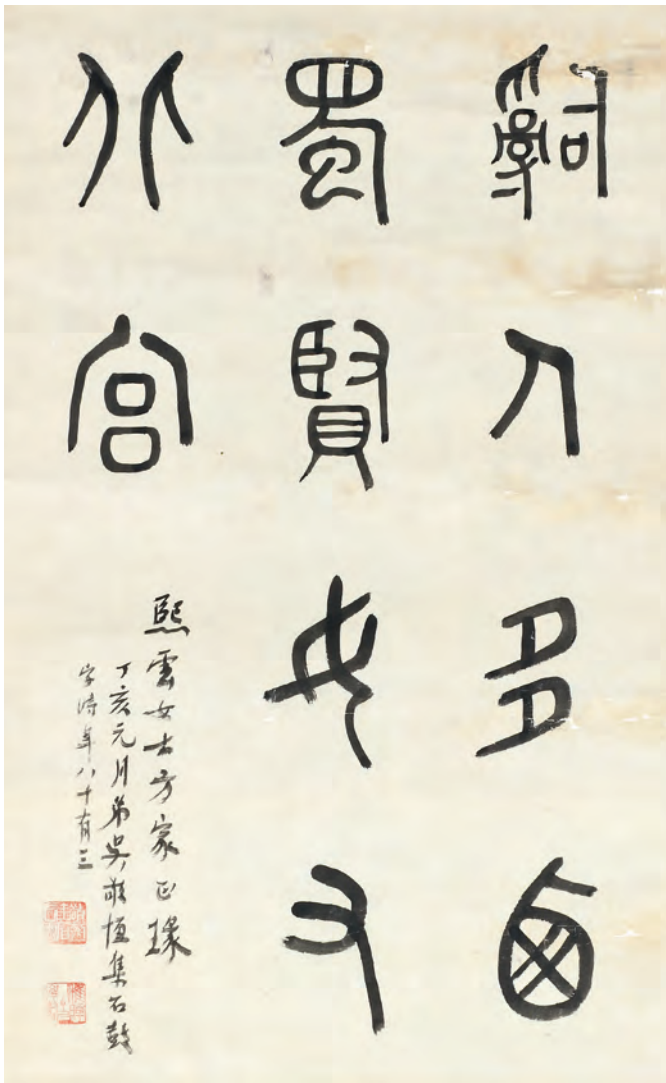 辭人多西
蜀賢女又
北宮
熙雲女士方家正瑑
丁亥元月弟吳敬恒集石鼓
字時年八十有三